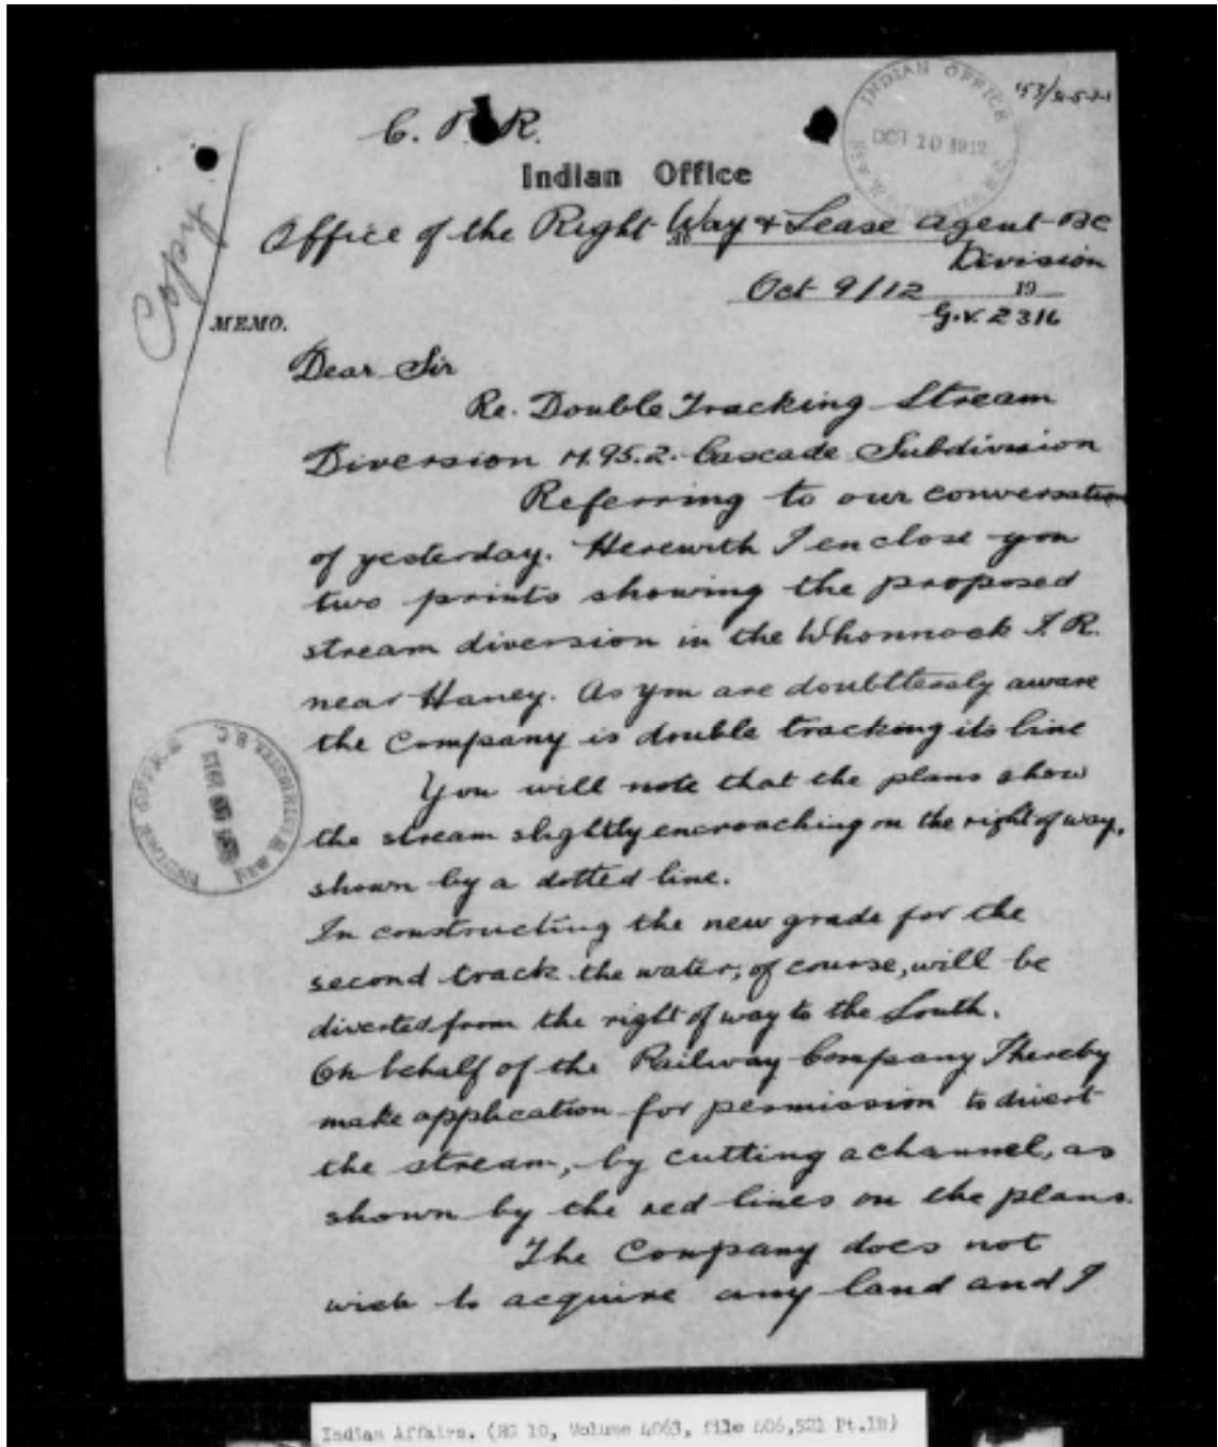 C. P. R.
INDIAN OFFICE
OCT 10 1912
Indian Office
Office of the Right Way & Lease Agent BC
Division
Oct 9/12 19
G.V. 2316
Copy
MEMO.
Dear Sir
Re. Double Tracking Stream
Diversion M.95.2. Cascade Subdivision
Referring to our conversation
of yesterday. Herewith I enclose you
two prints showing the proposed
stream diversion in the Whonnock I.R.
near Haney. As you are doubtlessly aware
the Company is double tracking its line
You will note that the plans show
the stream slightly encroaching on the right of way,
shown by a dotted line.
In constructing the new grade for the
second track the water, of course, will be
diverted from the right of way to the South.
On behalf of the Railway Company I hereby
make application for permission to divert
the stream, by cutting a channel, as
shown by the red lines on the plans.
The Company does not
wish to acquire any land and I
Indian Affairs. (RG 10, Volume 4063, file 406,521 Pt.1B)